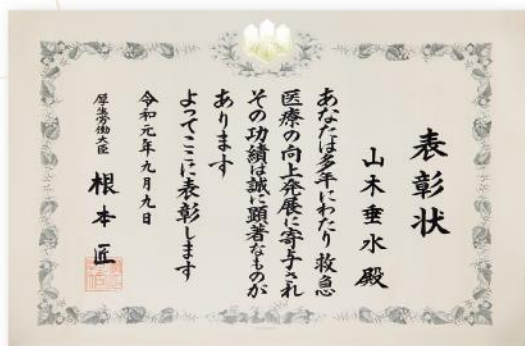 表彰状
山木垂水殿
あなたは多年にわたり救急
医療の向上発展に寄与され
その功績は誠に顕著なものが
あります
よってここに表彰します
令和元年九月九日
厚生労働大臣 根本匠